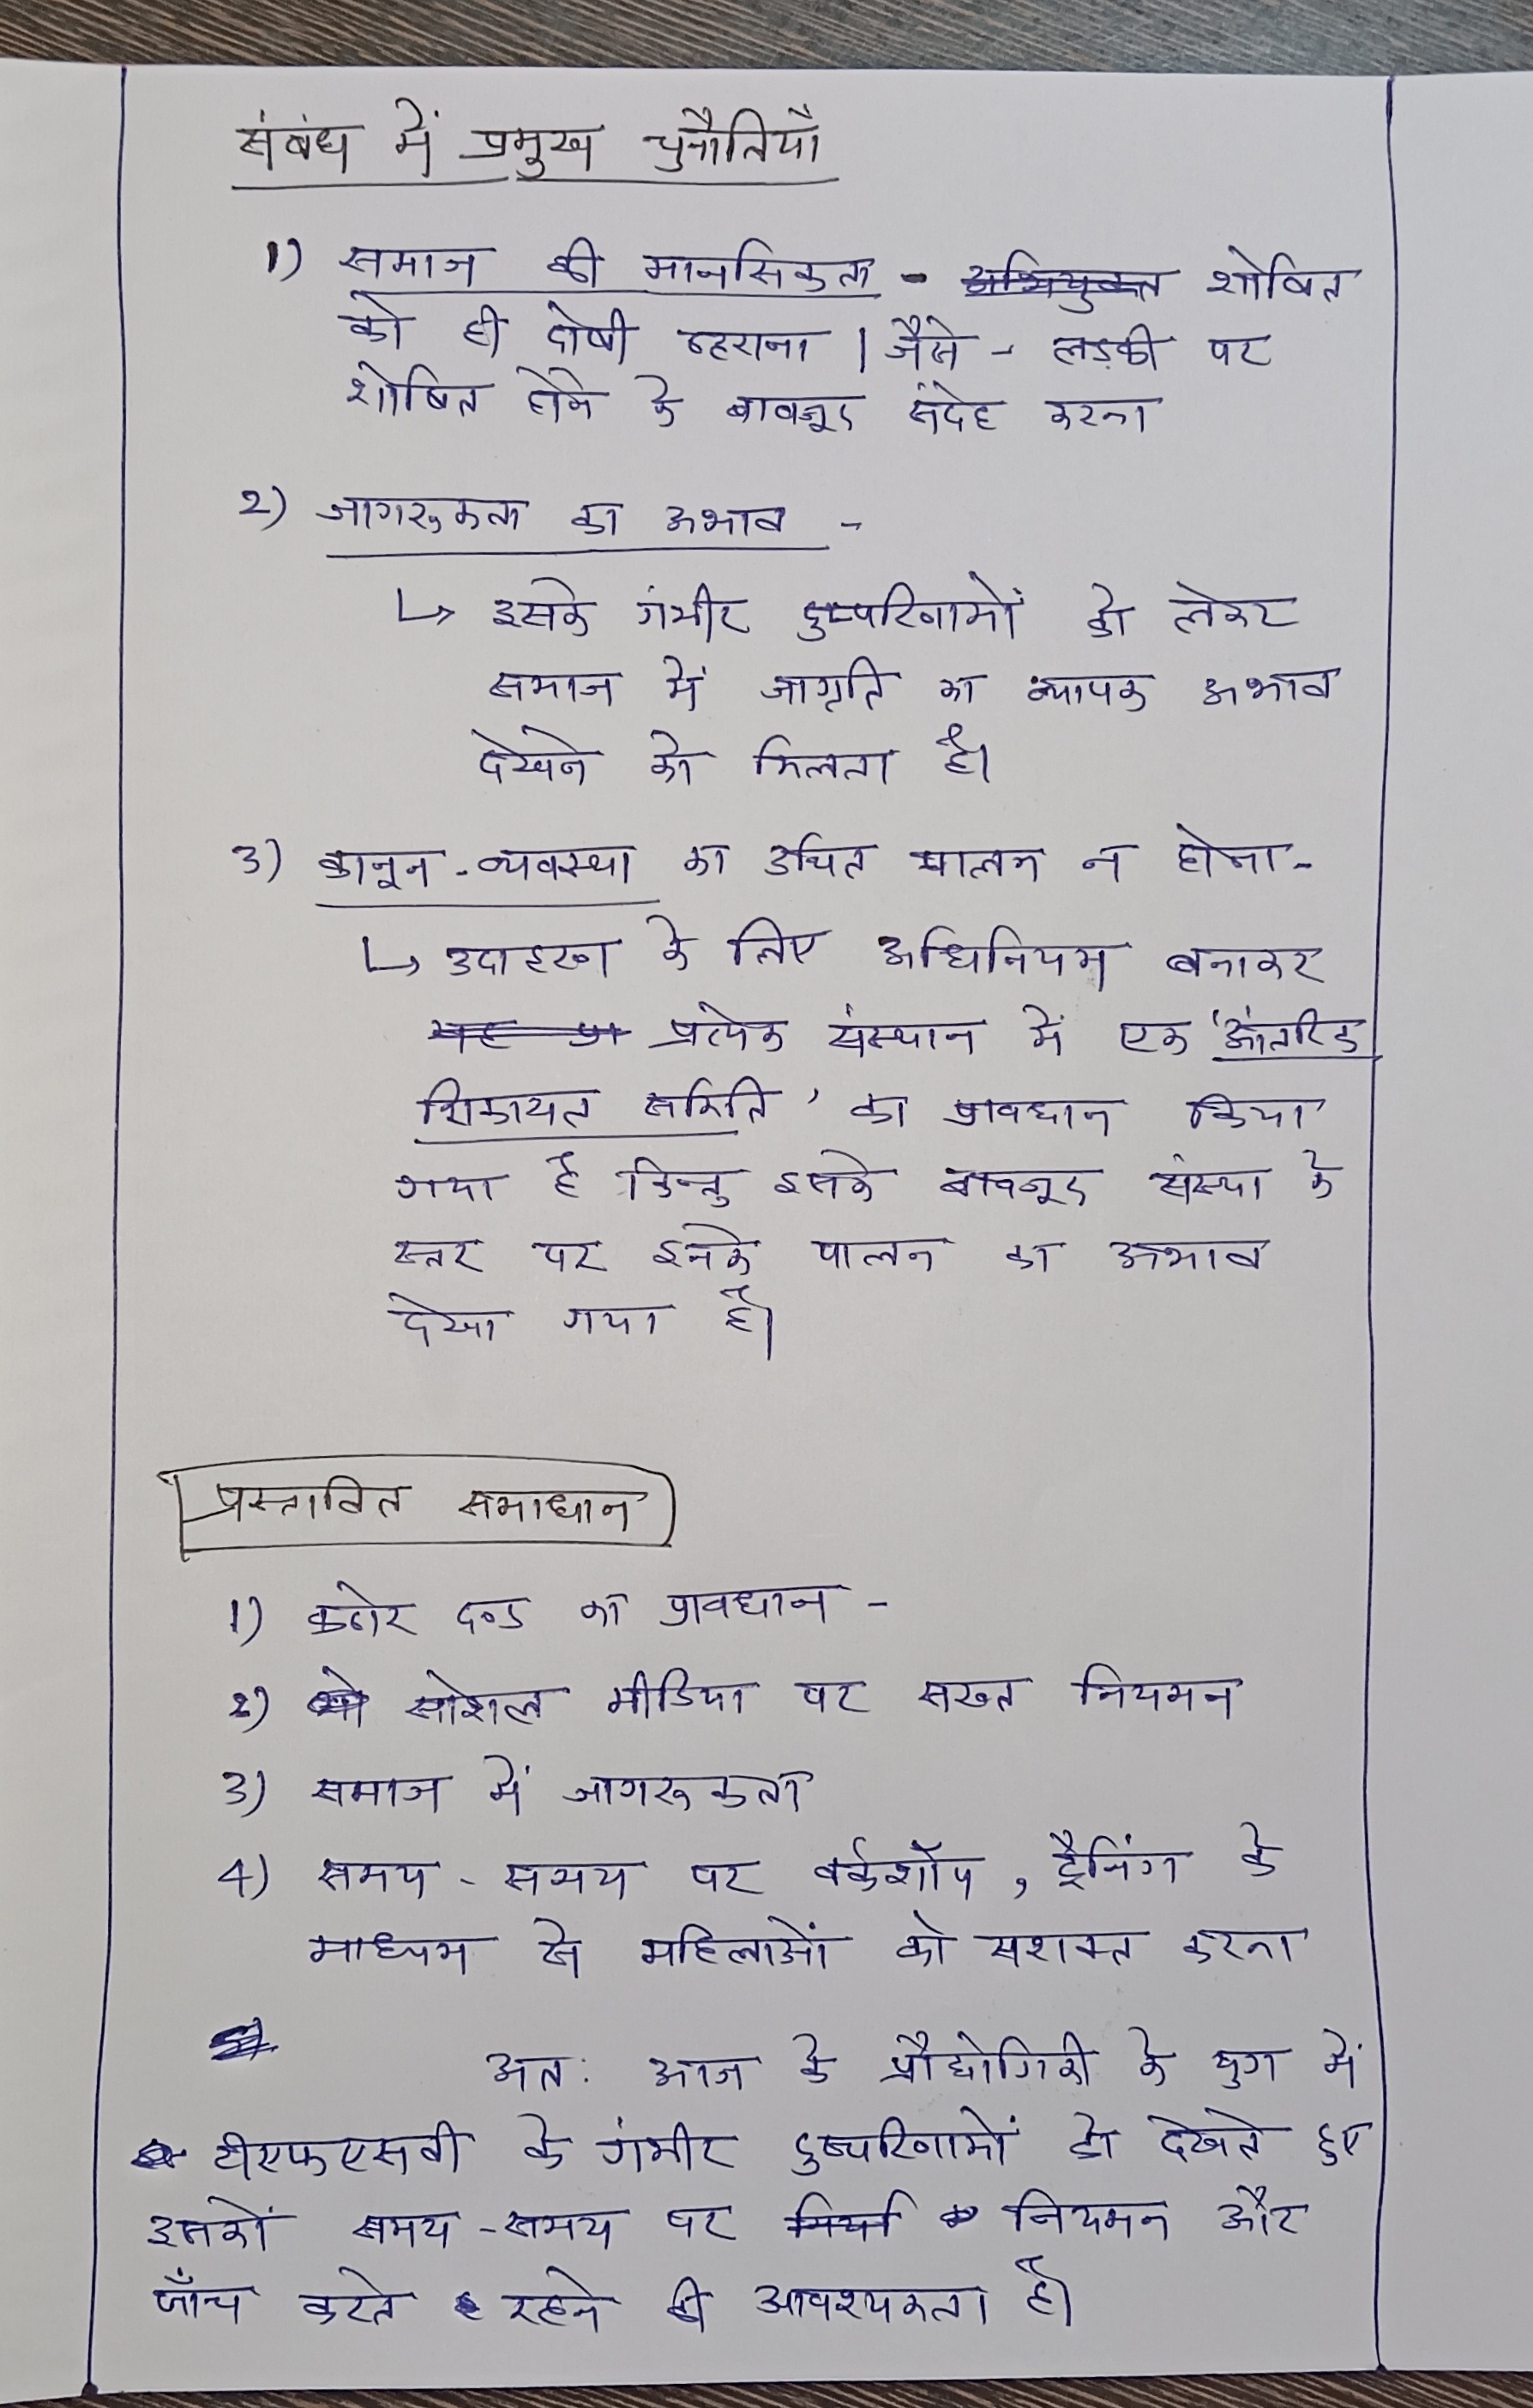 संबंध में प्रमुख चुनौतियाँ
1) समाज की मानसिकता - अभियुक्त शोषित
को ही दोषी ठहराना । जैसे - लड़की पर
शोषित होने के बावजूद संदेह करना
2) जागरूकता का अभाव -
↳ इसके गंभीर दुष्परिणामों को लेकर
समाज में जागृति का व्यापक अभाव
देखने को मिलता है।
3) कानून-व्यवस्था का उचित पालन न होना-
↳ उदाहरण के लिए अधिनियम बनाकर
प्रत्येक संस्थान में एक 'आंतरिक
शिकायत समिति' का प्रावधान किया
गया है किन्तु इसके बावजूद संस्था के
स्तर पर इनके पालन का अभाव
देखा गया है।
प्रस्तावित समाधान
1) कठोर दण्ड का प्रावधान -
2) सोशल मीडिया पर सख्त नियमन
3) समाज में जागरूकता
4) समय - समय पर वर्कशॉप, ट्रैनिंग के
माध्यम से महिलाओं को सशक्त करना
अत: आज के प्रौद्योगिकी के युग में
टीएफएसवी के गंभीर दुष्परिणामों को देखते हुए
इसकों समय - समय पर नियमन और
जाँच करते रहने की आवश्यकता है।